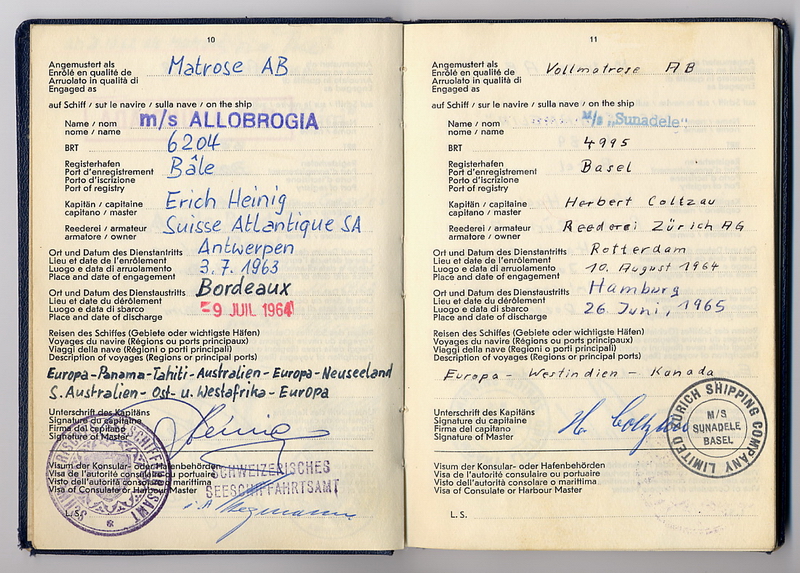 10
Angemustert als
Enrôlé en qualité de
Arruolato in qualità di
Engaged as
Matrose AB
auf Schiff / sur le navire / sulla nave / on the ship
Name / nom
nome / name
m/s ALLOBROGIA
BRT
6204
Registerhafen
Port d'enregistrement
Porto d'iscrizione
Port of registry
Bâle
Kapitän / capitaine
capitano / master
Erich Heinig
Reederei / armateur
armatore / owner
Suisse Atlantique SA
Ort und Datum des Dienstantritts
Lieu et date de l'enrôlement
Luogo e data di arruolamento
Place and date of engagement
Antwerpen
3. 7. 1963
Ort und Datum des Dienstaustritts
Lieu et date du dérôlement
Luogo e data di sbarco
Place and date of discharge
Bordeaux
-9 JUIL 1964
Reisen des Schiffes (Gebiete oder wichtigste Häfen)
Voyages du navire (Régions ou ports principaux)
Viaggi della nave (Regioni o porti principali)
Description of voyages (Regions or principal ports)
Europa-Panama-Tahiti-Australien-Europa-Neuseeland
S. Australien-Ost- u. Westafrika-Europa
Unterschrift des Kapitäns
Signature du capitaine
Firma del capitano
Signature of Master
Heinig
Visum der Konsular- oder Hafenbehörden
Visa de l'autorité consulaire ou portuaire
Visto dell'autorità consolare o marittima
Visa of Consulate or Harbour Master
SCHWEIZERISCHES
SEESCHIFFAHRTSAMT
L.S.
11
Angemustert als
Enrôlé en qualité de
Arruolato in qualità di
Engaged as
Vollmatrose AB
auf Schiff / sur le navire / sulla nave / on the ship
Name / nom
nome / name
M/s „Sunadele"
BRT
4995
Registerhafen
Port d'enregistrement
Porto d'iscrizione
Port of registry
Basel
Kapitän / capitaine
capitano / master
Herbert Coltzau
Reederei / armateur
armatore / owner
Reederei Zürich AG
Ort und Datum des Dienstantritts
Lieu et date de l'enrôlement
Luogo e data di arruolamento
Place and date of engagement
Rotterdam
10. August 1964
Ort und Datum des Dienstaustritts
Lieu et date du dérôlement
Luogo e data di sbarco
Place and date of discharge
Hamburg
26. Juni, 1965
Reisen des Schiffes (Gebiete oder wichtigste Häfen)
Voyages du navire (Régions ou ports principaux)
Viaggi della nave (Regioni o porti principali)
Description of voyages (Regions or principal ports)
Europa - Westindien - Kanada
Unterschrift des Kapitäns
Signature du capitaine
Firma del capitano
Signature of Master
H. Coltzau
ZÜRICH SHIPPING COMPANY LIMITED
M/S
SUNADELE
BASEL
Visum der Konsular- oder Hafenbehörden
Visa de l'autorité consulaire ou portuaire
Visto dell'autorità consolare o marittima
Visa of Consulate or Harbour Master
L. S.